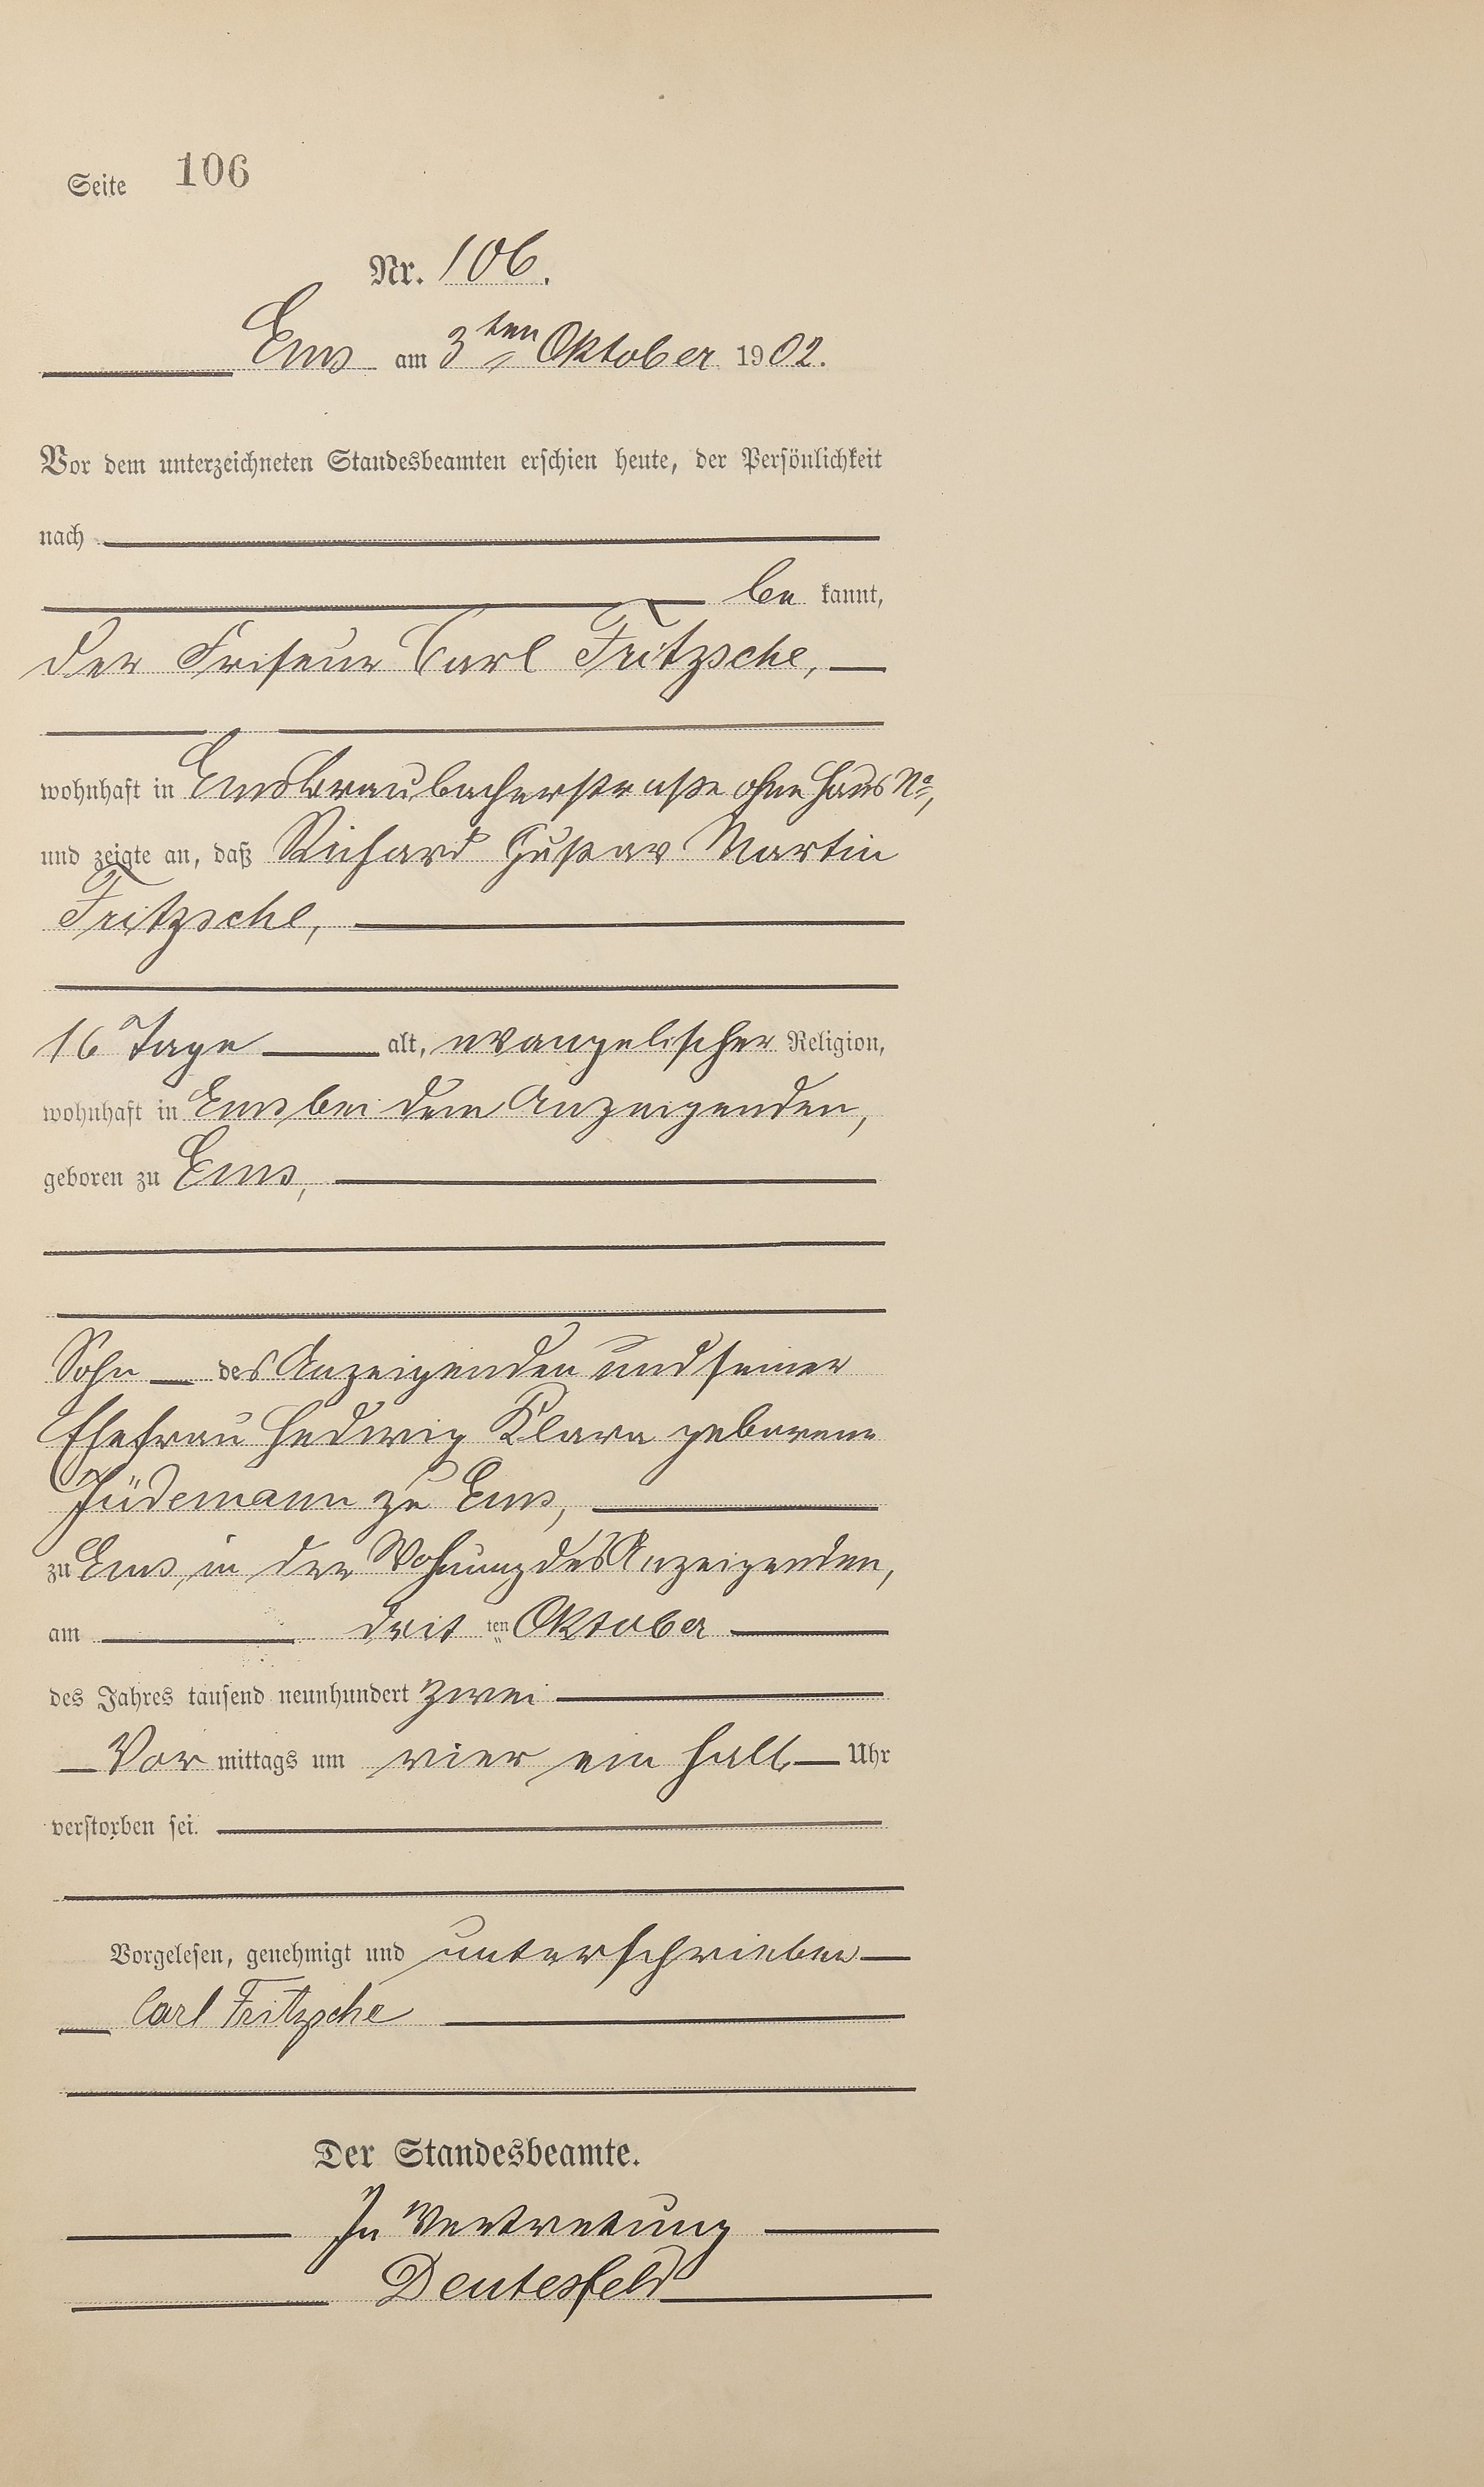 Seite 106
Nr. 106.
Ems am 3ten Oktober 1902.
Vor dem unterzeichneten Standesbeamten erschien heute, der Persönlichkeit
nach
be kannt,
der Friseur Carl Fritzsche,
wohnhaft in Ems Braubacherstraße ohne Haus No,
und zeigte an, daß Richard Gustav Martin
Fritzsche,
16 Tage alt, evangelischer Religion,
wohnhaft in Ems bei dem Anzeigenden,
geboren zu Ems,
Sohn des Anzeigenden und seiner
Ehefrau Hedwig Klara geborene
Jüdemann zu Ems,
zu Ems, in der Wohnung des Anzeigenden,
am drit ten Oktober
des Jahres tausend neunhundert zwei
Vor mittags um vier ein halb Uhr
verstorben sei.
Vorgelesen, genehmigt und unterschrieben
Carl Fritzsche
Der Standesbeamte.
In Vertretung
Deutesfeld